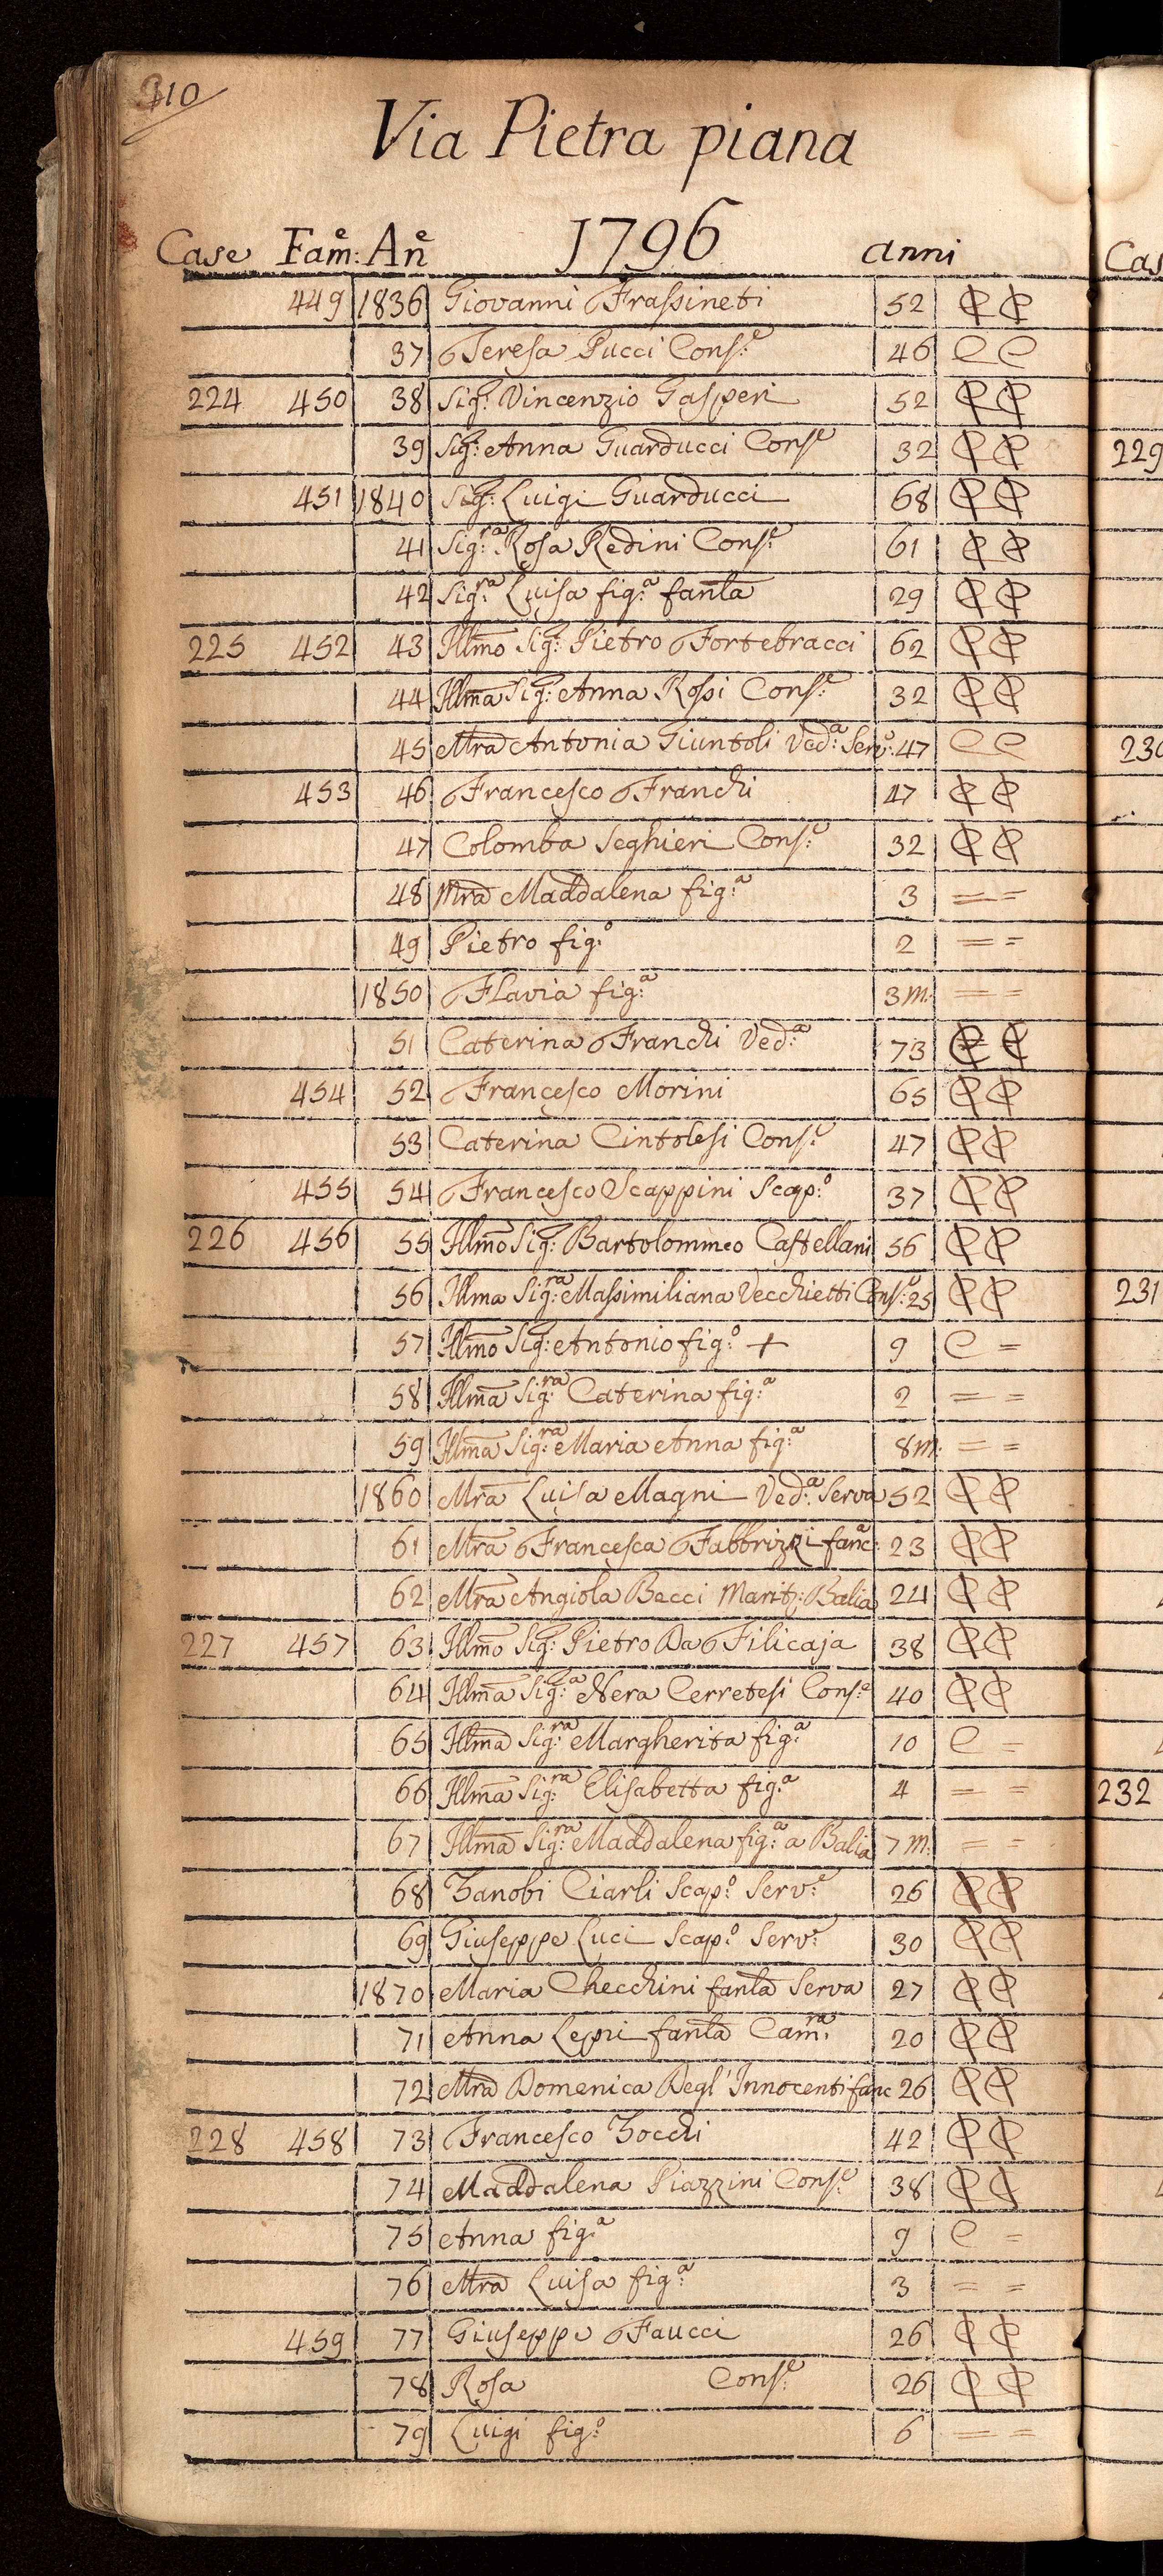 310
Via Pietra piana
Case Fam:e An:e 1796 anni
Cas
449 1836 Giovanni Frassineti 52
37 Teresa Pucci Cons:e 46
224 450 38 Sig: Vincenzio Gasperi 52
39 Sig: Anna Guarducci Cons:e 32
229
451 1840 Sig: Luigi Guarducci 68
41 Sig:ra Rosa Redini Cons:e 61
42 Sig:ra Luisa fig:a fanla 29
225 452 43 Illmo Sig: Pietro Fortebracci 62
44 Illma Sig: Anna Rossi Cons:e 32
45 Mra Antonia Giuntoli Ved:a Serv: 47
230
453 46 Francesco Franchi 47
47 Colomba Seghieri Cons:e 32
48 Mra Maddalena fig:a 3 = =
49 Pietro fig:o 2 = =
1850 Flavia fig:a 3 m. = =
51 Caterina Franchi Ved:a 73
454 52 Francesco Morini 65
53 Caterina Cintolesi Cons:e 47
455 54 Francesco Scappini Scap:o 37
226 456 55 Illmo Sig: Bartolommeo Castellani 56
56 Illma Sig:ra Massimiliana Vecchietti Cons:e 25
231
57 Illmo Sig: Antonio fig:o + 9 C =
58 Illma Sig:ra Caterina fig:a 2 = =
59 Illma Sig:ra Maria Anna fig:a 8 m. = =
1860 Mra Luisa Magni Ved:a Serva 52
61 Mra Francesca Fabbrizzi fanc:a 23
62 Mra Angiola Becci Marit: Balia 24
227 457 63 Illmo Sig: Pietro Da Filicaja 38
64 Illma Sig:a Nera Cerretesi Cons:e 40
65 Illma Sig:ra Margherita fig:a 10 C =
66 Illma Sig:ra Elisabetta fig:a 4 = =
232
67 Illma Sig:ra Maddalena fig:a a Balia 7 m. = =
68 Zanobi Ciarli Scap:o Serv:e 26
69 Giuseppe Luci Scap:o Serv: 30
1870 Maria Checchini fanla Serva 27
71 Anna Lepri fanla Cam:ra 20
72 Mra Domenica Degl'Innocenti fanc 26
228 458 73 Francesco Zocchi 42
74 Maddalena Piazzini Cons:e 38
75 Anna fig:a 9 C =
76 Mra Luisa fig:a 3 = =
459 77 Giuseppe Faucci 26
78 Rosa Cons:e 26
79 Luigi fig:o 6 = =